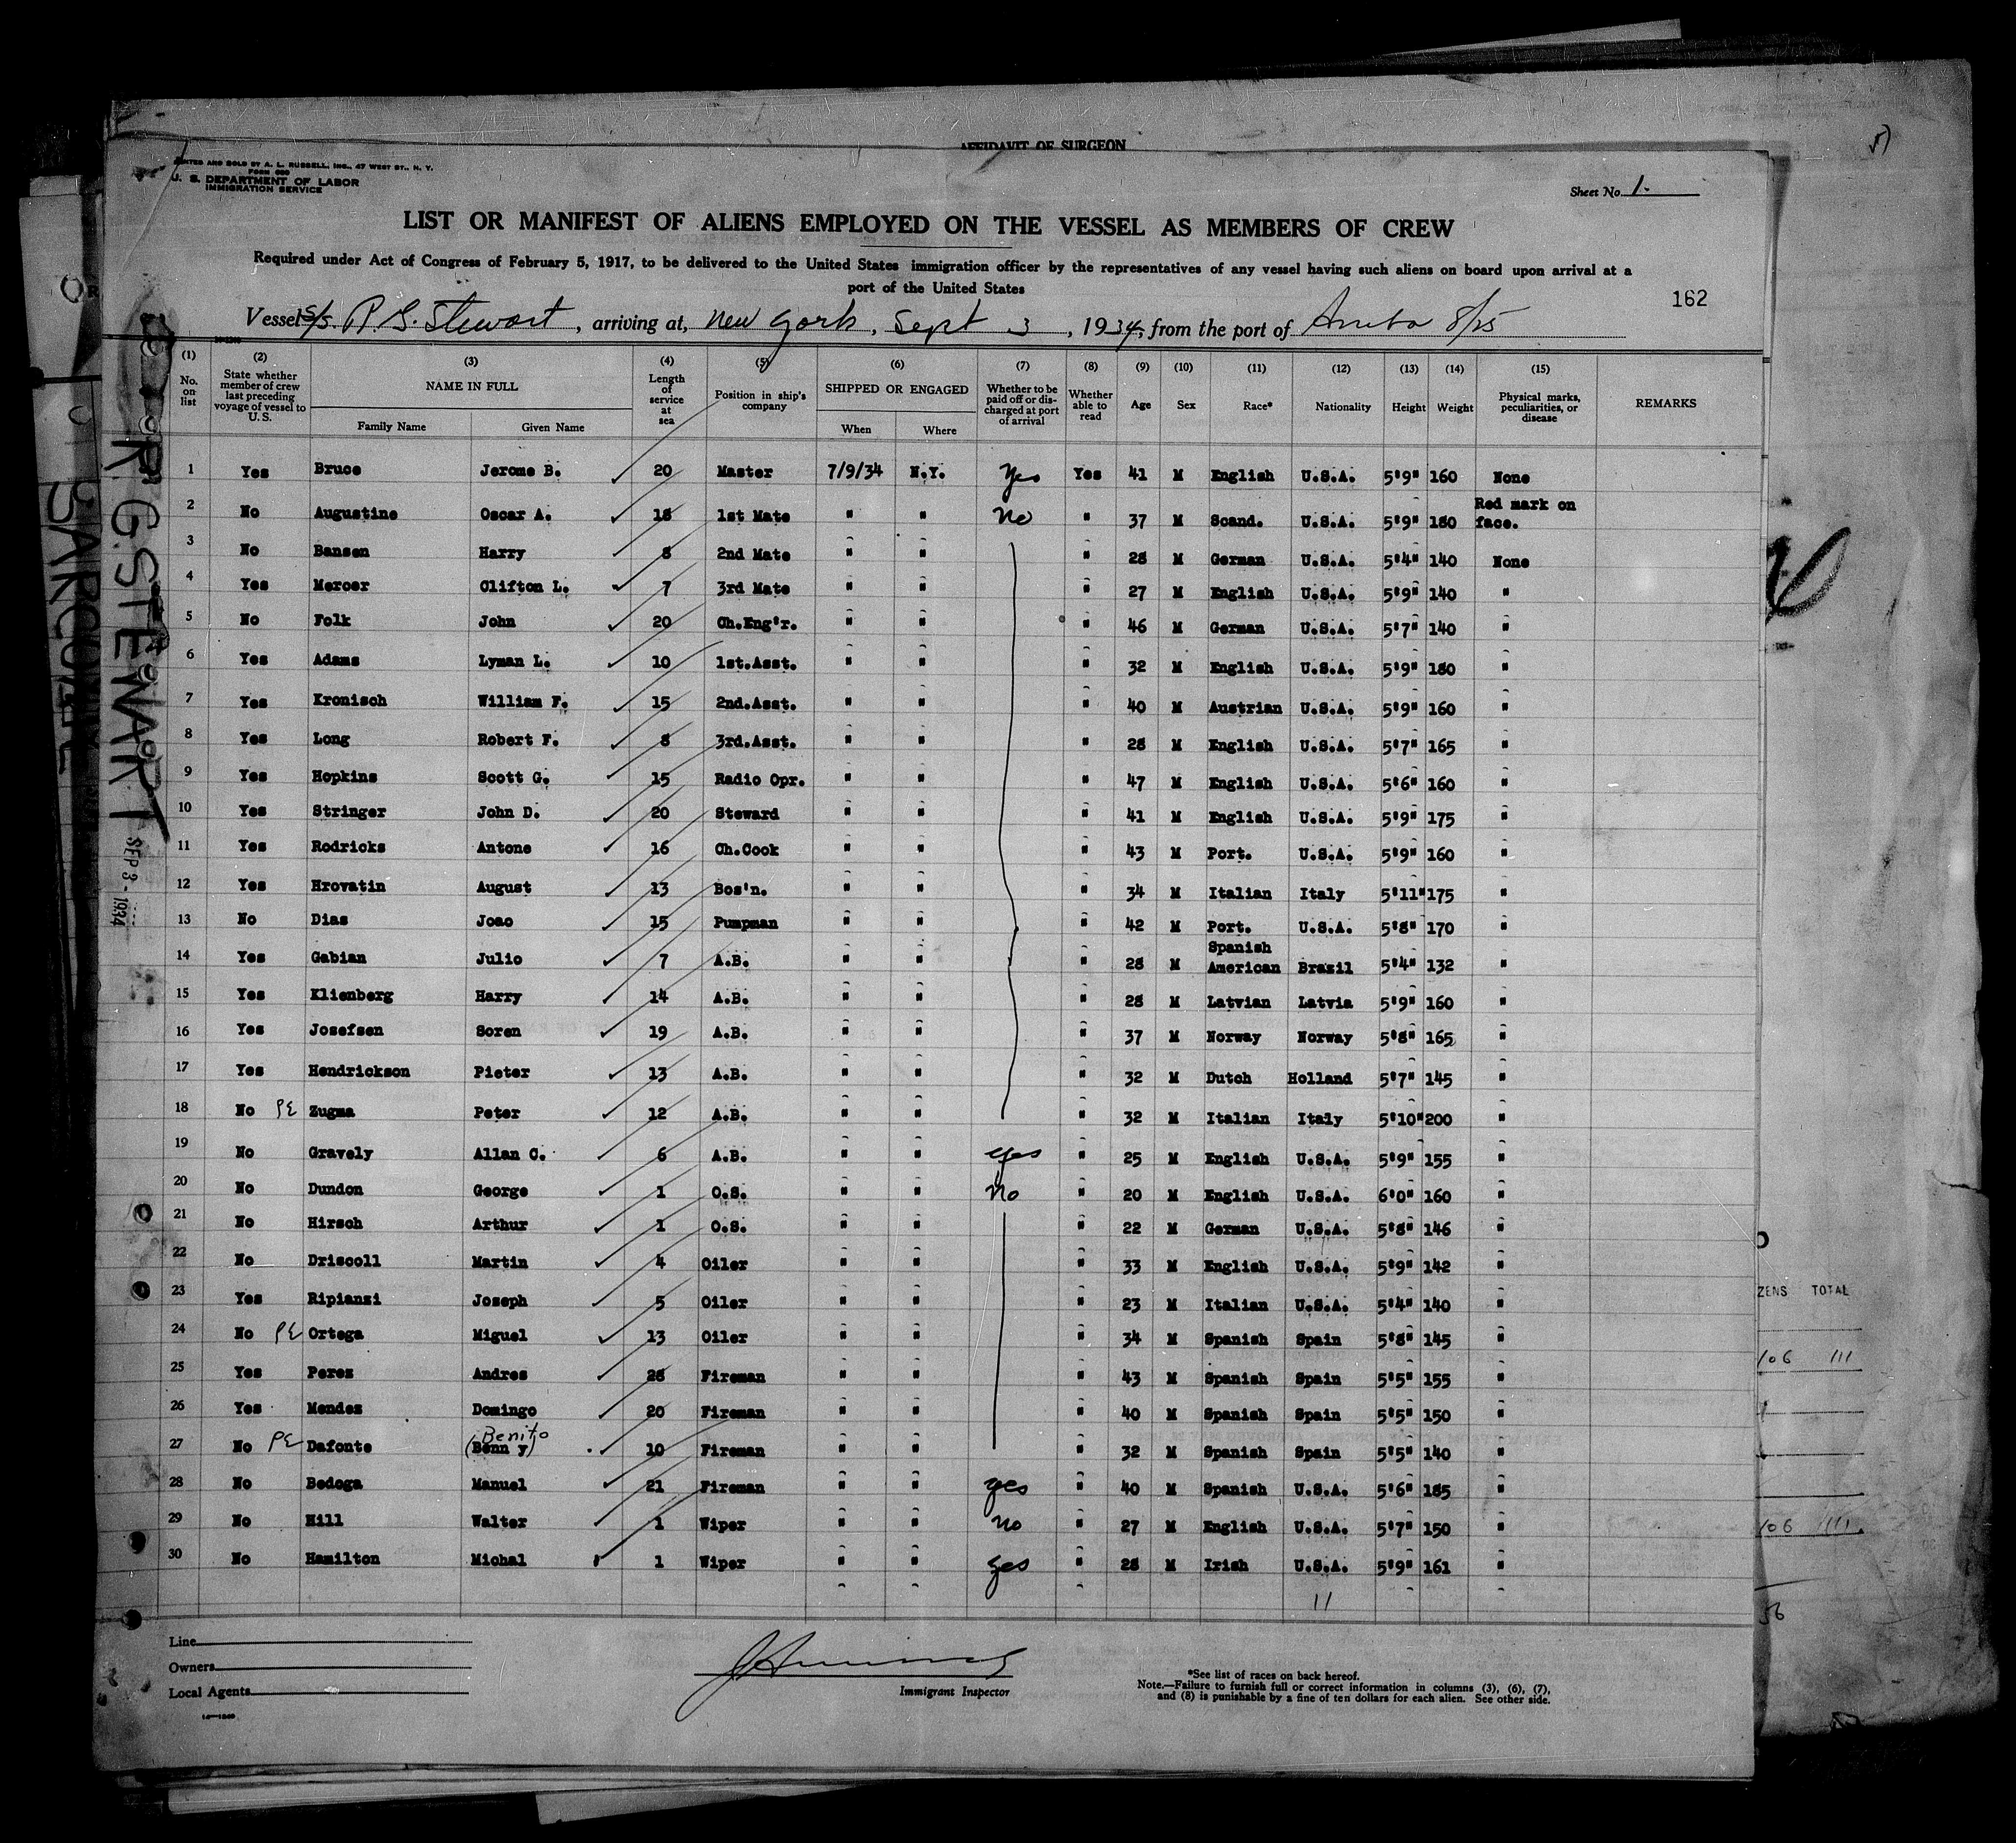 AFFIDAVIT OF SURGEON
PRINTED AND SOLD BY A. L. RUSSELL, INC., 47 WEST ST., N. Y.
FORM 680
U. S. DEPARTMENT OF LABOR
IMMIGRATION SERVICE
Sheet No. 1.
LIST OR MANIFEST OF ALIENS EMPLOYED ON THE VESSEL AS MEMBERS OF CREW
Required under Act of Congress of February 5, 1917, to be delivered to the United States immigration officer by the representatives of any vessel having such aliens on board upon arrival at a
port of the United States
162
Vessel S/S. R. G. Stewart, arriving at, New York, Sept 3, 1934, from the port of Aruba 8/25
(1) (2) (3) (4) (5) (6) (7) (8) (9) (10) (11) (12) (13) (14) (15)
No. on list State whether member of crew last preceding voyage of vessel to U. S. NAME IN FULL Length of service at sea Position in ship's company SHIPPED OR ENGAGED Whether to be paid off or discharged at port of arrival Whether able to read Age Sex Race* Nationality Height Weight Physical marks, peculiarities, or disease REMARKS
Family Name Given Name When Where
1 Yes Bruce Jerome B. 20 Master 7/9/34 N.Y. Yes Yes 41 M English U.S.A. 5'9" 160 None
2 No Augustine Oscar A. 18 1st Mate " " No " 37 M Scand. U.S.A. 5'9" 180 Red mark on face.
3 No Bansen Harry 8 2nd Mate " " " 28 M German U.S.A. 5'4" 140 None
4 Yes Mercer Clifton L. 7 3rd Mate " " " 27 M English U.S.A. 5'9" 140 "
5 No Folk John 20 Ch.Eng'r. " " " 46 M German U.S.A. 5'7" 140 "
6 Yes Adams Lyman L. 10 1st.Asst. " " " 32 M English U.S.A. 5'9" 180 "
7 Yes Kronisch William F. 15 2nd.Asst. " " " 40 M Austrian U.S.A. 5'9" 160 "
8 Yes Long Robert F. 8 3rd.Asst. " " " 28 M English U.S.A. 5'7" 165 "
9 Yes Hopkins Scott G. 15 Radio Opr. " " " 47 M English U.S.A. 5'6" 160 "
10 Yes Stringer John D. 20 Steward " " " 41 M English U.S.A. 5'9" 175 "
11 Yes Rodricks Antone 16 Ch.Cook " " " 43 M Port. U.S.A. 5'9" 160 "
12 Yes Hrovatin August 13 Bos'n. " " " 34 M Italian Italy 5'11" 175 "
13 No Dias Joao 15 Pumpman " " " 42 M Port. U.S.A. 5'8" 170 "
14 Yes Gabian Julio 7 A.B. " " " 28 M Spanish American Brazil 5'4" 132 "
15 Yes Klienberg Harry 14 A.B. " " " 28 M Latvian Latvia 5'9" 160 "
16 Yes Josefsen Soren 19 A.B. " " " 37 M Norway Norway 5'8" 165 "
17 Yes Hendrickson Pieter 13 A.B. " " " 32 M Dutch Holland 5'7" 145 "
18 No PE Zugma Peter 12 A.B. " " " 32 M Italian Italy 5'10" 200 "
19 No Gravely Allan C. 6 A.B. " " yes " 25 M English U.S.A. 5'9" 155 "
20 No Dundon George 1 O.S. " " No " 20 M English U.S.A. 6'0" 160 "
21 No Hirsch Arthur 1 O.S. " " " 22 M German U.S.A. 5'8" 146 "
22 No Driscoll Martin 4 Oiler " " " 33 M English U.S.A. 5'9" 142 "
23 Yes Ripianzi Joseph 5 Oiler " " " 23 M Italian U.S.A. 5'4" 140 "
24 No PE Ortega Miguel 13 Oiler " " " 34 M Spanish Spain 5'8" 145 "
25 Yes Perez Andres 28 Fireman " " " 43 M Spanish Spain 5'5" 155 "
26 Yes Mendez Domingo 20 Fireman " " " 40 M Spanish Spain 5'5" 150 "
Benito
27 No PE Dafonte (Benn y) 10 Fireman " " " 32 M Spanish Spain 5'5" 140 "
28 No Bedoga Manuel 21 Fireman " " yes " 40 M Spanish U.S.A. 5'6" 185 "
29 No Hill Walter 1 Wiper " " no " 27 M English U.S.A. 5'7" 150 "
30 No Hamilton Michal 1 Wiper " " yes " 28 M Irish U.S.A. 5'9" 161 "
11
Line
Owners
Local Agents
Immigrant Inspector
*See list of races on back hereof.
Note.—Failure to furnish full or correct information in columns (3), (6), (7),
and (8) is punishable by a fine of ten dollars for each alien. See other side.
R.G. STEWART
SEP 3 - 1934
ZENS TOTAL
106 111
106 111
56